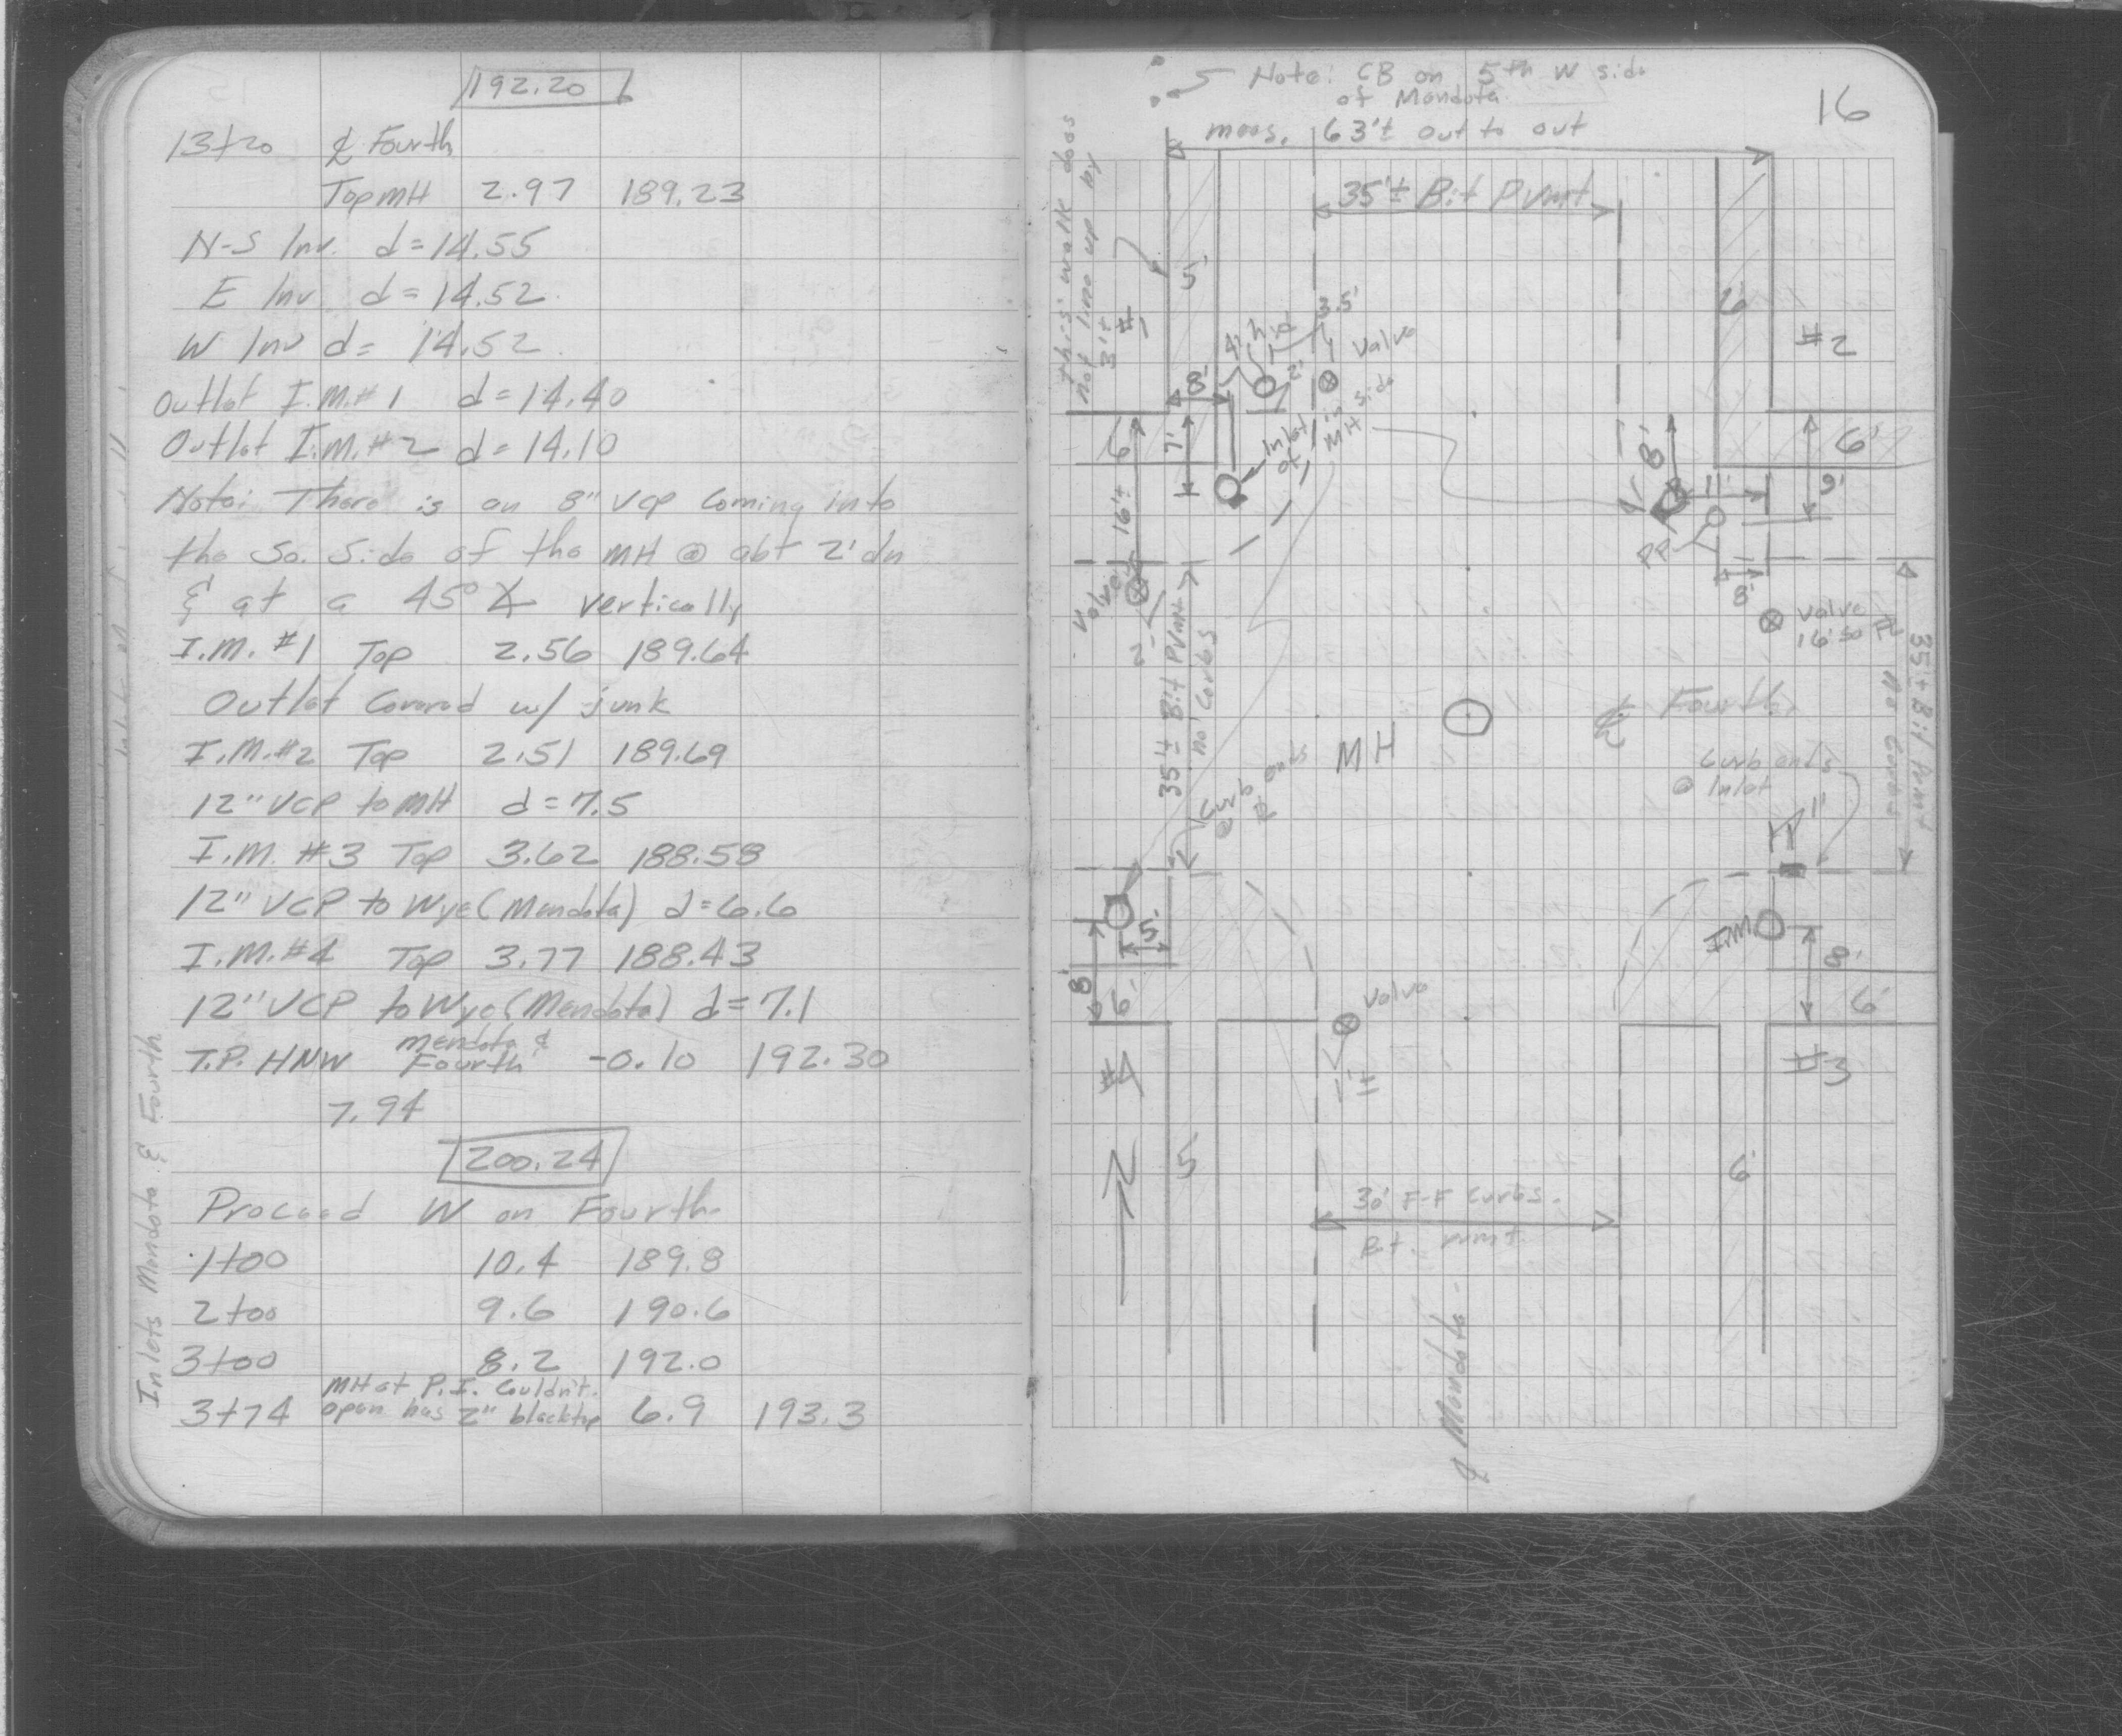 192.20
13+20 ℄ Fourth
Top MH 2.97 189.23
N-S Inv. d=14.55
E Inv d=14.52
W Inv d= 14.52
Outlet I.M.#1 d=14.40
Outlet I.M.#2 d=14.10
Note: There is an 8" VCP coming into
the So. Side of the MH @ abt 2' dn
& at a 45° ∠ vertically
I.M. #1 Top 2.56 189.64
Outlet Covered w/ junk
I.M.#2 Top 2.51 189.69
12" VCP to MH d=7.5
I.M. #3 Top 3.62 188.58
12" VCP to Wye (Mendota) d=6.6
I.M.#4 Top 3.77 188.43
12" VCP to Wye (Mendota) d=7.1
T.P. HNW Mendota & Fourth -0.10 192.30
7.94
200.24
Proceed W on Fourth
1+00 10.4 189.8
2+00 9.6 190.6
3+00 8.2 192.0
MH at P.I. Couldn't
3+74 open has 2" blacktop 6.9 193.3
Inlets Mendota & Fourth
16
Note: CB on 5th W side
of Mendota
meas. 63'± out to out
35'± Bit Pvmt
This walk does
not line up by
3'±
#1
5'
6'
#2
3.5'
hyd
4'
2'
Valve
8'
7'
6'
16'±
Inlet in side
of MH
8'
1'
11'
6'
9'
PP
8'
Valve
2'
Valve
16' So
35'± Bit Pvmt
no Curbs
35'± Bit Pvmt
no Curbs
℄ Fourth
MH
Curb ends
@
Curb ends
@ Inlet
1'
5'
8'
6'
I.M.
8'
6'
Valve
1'±
#4
#3
N
5
6'
30' F-F Curbs.
Bit. Pvmt
℄ Mendota